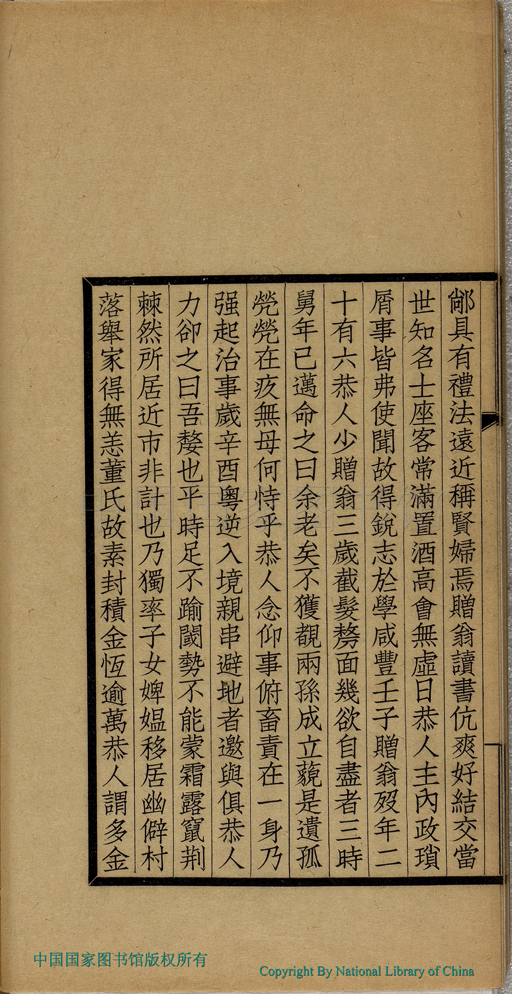 鄃具有禮法遠近稱賢婦焉贈翁讀書伉爽好結交當
世知名士座客常滿置酒高會無虛日恭人主內政瑣
屑事皆弗使聞故得銳志於學咸豐壬子贈翁歿年二
十有六恭人少贈翁三歲截髮剺面幾欲自盡者三時
舅年已邁命之曰余老矣不獲覩兩孫成立藐是遺孤
煢煢在疚無母何恃乎恭人念仰事俯畜責在一身乃
强起治事歲辛酉粵逆入境親串避地者邀與俱恭人
力卻之曰吾嫠也平時足不踰閾勢不能蒙霜露竄荆
棘然所居近市非計也乃獨率子女婢媼移居幽僻村
落舉家得無恙董氏故素封積金恆逾萬恭人謂多金
中国国家图书馆版权所有
Copyright By National Library of China